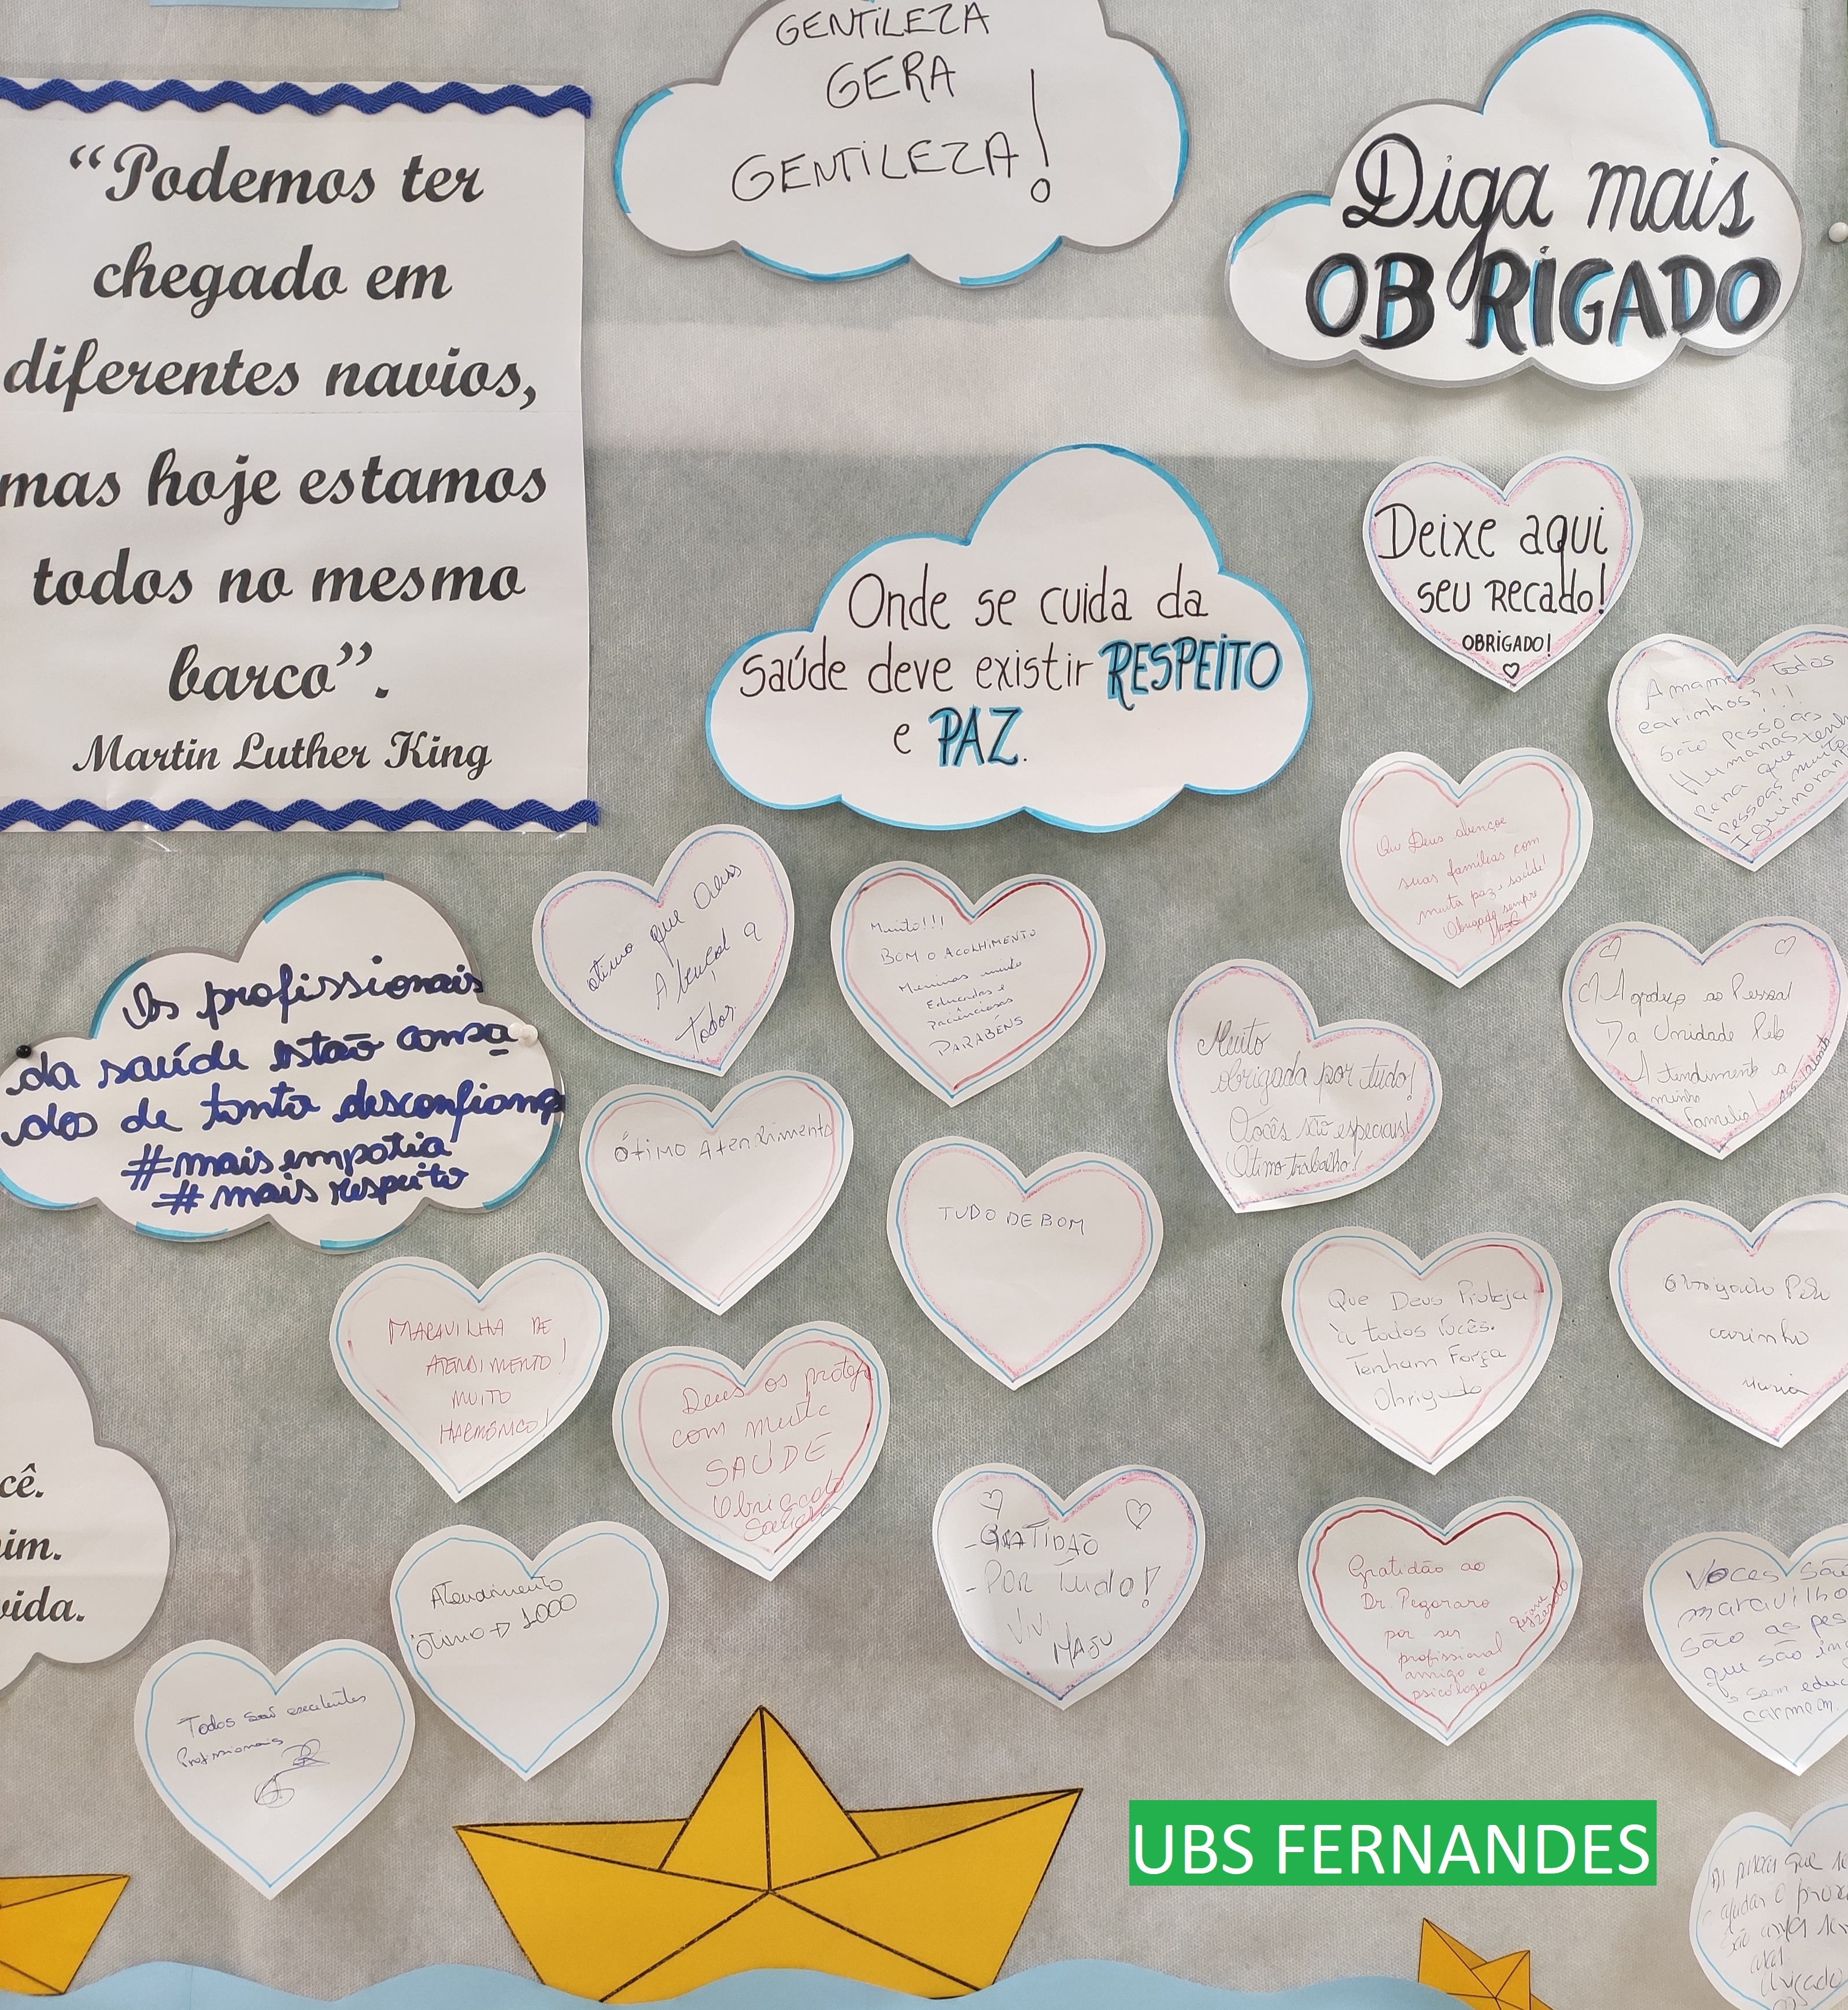 GENTILEZA
GERA
GENTILEZA!
Diga mais
OBRIGADO
“Podemos ter
chegado em
diferentes navios,
mas hoje estamos
todos no mesmo
barco”.
Martin Luther King
Onde se cuida da
saúde deve existir RESPEITO
e PAZ.
Deixe aqui
seu Recado!
OBRIGADO!
Amamos todos
carinhos!!!
são pessoas
Humanas
Pena que
Pessoas muito
Que Deus abençoe
suas famílias com
muita paz, saúde!
Obrigado sempre
ótimo que Deus
Abençoe a
todos
Muito!!!
BOM O ACOLHIMENTO
Meninas muito
Educadas e
Paciênciosas
PARABÉNS
Os profissionais
da saúde estão cansa
dos de tanta desconfianç
#mais empatia
#mais respeito
Muito
obrigada por tudo!
Vocês são especiais!
Ótimo trabalho!
Agradeço ao Pessoal
Da Unidade Pelo
Atendimento a
minha
Familia!
Ótimo Atendimento
TUDO DE BOM
MARAVILHA DE
ATENDIMENTO!
MUITO
HARMÔNICO!
Deus os proteja
com muita
SAÚDE
Obrigado
Que Deus Proteja
à todos vocês.
Tenham Força
Obrigado
Obrigado Pelo
carinho
Maria
cê.
im.
vida.
Atendimento
Ótimo → 1000
-GRATIDÃO
-Por tudo!
Vivi
MAJU
Gratidão ao
Dr. Pegoraro
por ser
profissional
amigo e
psicólogo
Voces são
maravilho
são as pes
que são
sem educ
carmem
Todos são excelentes
Profissionais
UBS FERNANDES
que
ajudar e
Obrigado